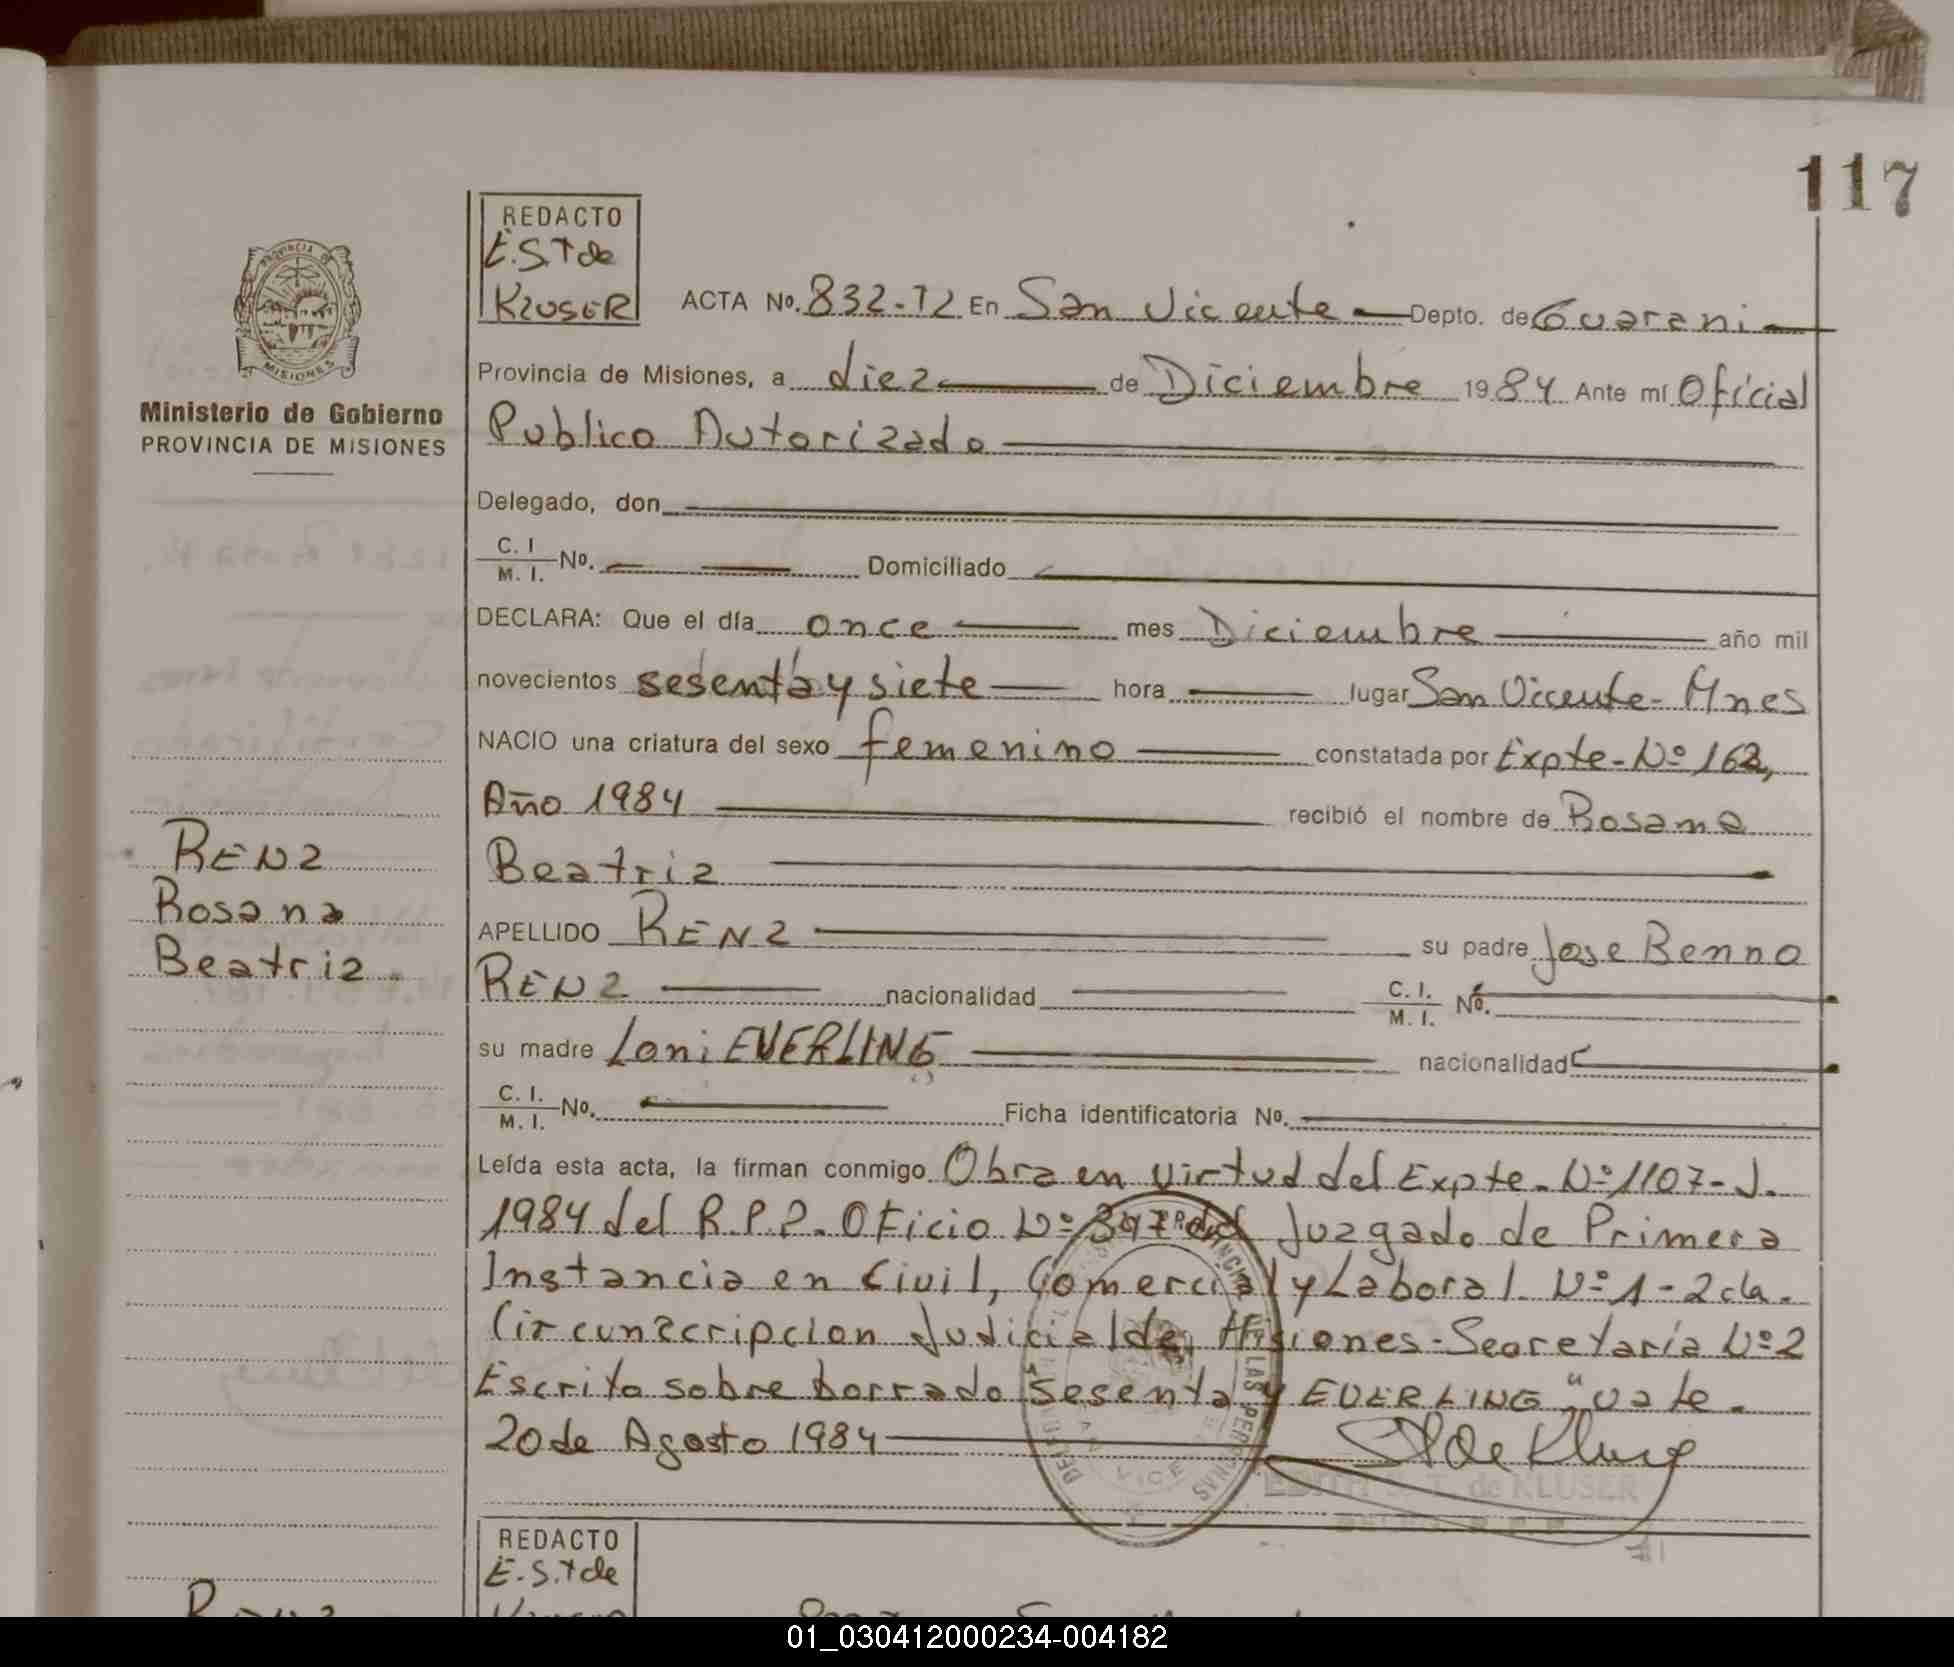 117
REDACTO
E.S.T de
KLUSER
PROVINCIA DE
MISIONES
Ministerio de Gobierno
PROVINCIA DE MISIONES
ACTA No. 832-T2 En San Vicente Depto. de Guarani
Provincia de Misiones, a diez de Diciembre 1984 Ante mí Oficial
Publico Autorizado
Delegado, don
C. I.
M. I. No. Domiciliado
DECLARA: Que el día once mes Diciembre año mil
novecientos sesenta y siete hora lugar San Vicente- Mnes
NACIO una criatura del sexo femenino constatada por Expte- Nº 162,
Año 1984 recibió el nombre de Rosana
Beatriz
APELLIDO RENZ su padre Jose Benno
RENZ nacionalidad C. I.
M. I. No.
su madre Loni EVERLING nacionalidad
C. I.
M. I. No. Ficha identificatoria No.
Leída esta acta, la firman conmigo Obra en virtud del Expte. Nº 1107-J.
1984 del R.P.P. Oficio Nº del Juzgado de Primera
Instancia en Civil, Comercial y Laboral Nº 1 - 2da.
Circunscripcion Judicial de Misiones-Secretaría Nº 2
Escrito sobre borrado Sesenta y EVERLING" vale.
20 de Agosto 1984
EDITH S. T. de KLUSER
RENZ
Rosana
Beatriz.
REDACTO
E.S.T de
01_030412000234-004182